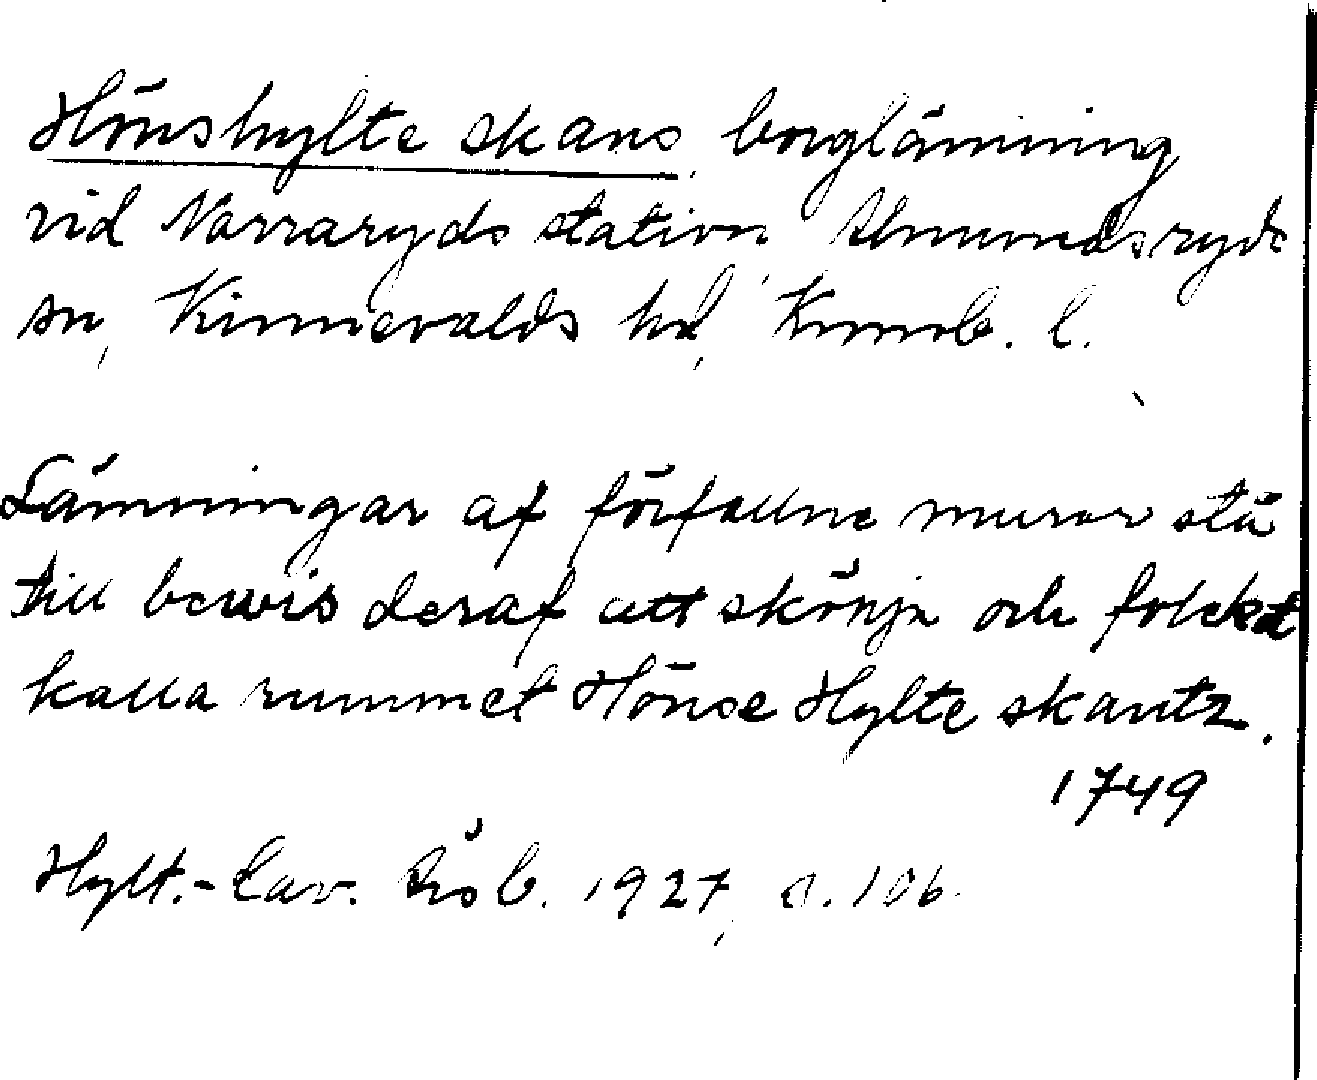 Hönshylte skans, borglämning
vid Norraryds station, Almundsryds
sn, Kinnevalds hd, Kronob. l.
Lämningar af förfallne murar stå
till bewis deraf att skönja och folcket
kalla rummet Hönse Hylte skantz.
1749
Hylt.-Cav. Årsb. 1927, s. 106